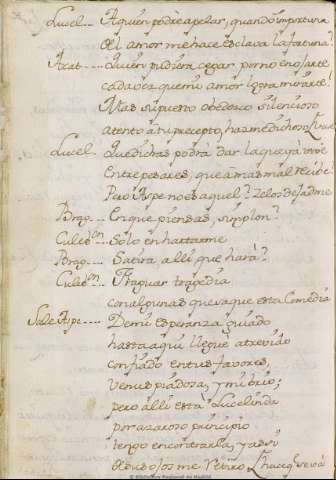 Lucel... A quien podre apelar, quando importuna
el amor me hace esclava la fortuna?
Arat.... Quien pudiera cegar por no enojarte
cada vez que mi amor logra mirarte!
Mas supuesto obedezco silencioso
atento à tu precepto, haz me dichoso
Lucel.. Que dichas podrà dar la que yà vive
Entre pesares, que amas mal recibe
Pero Aspe no es aquel? Zelos dejadme
Brog.... En que piensas, simplon?
Culeb.on Solo en hartarme
Brog... Satira alli que harà?
Culeb.on Fraguar tragedia
con algunas que saque esta Comedia
Sale Aspe.... De mi esperanza guiado
hasta aqui lleguè atrevido
confiado en tus favores,
Venus piadosa, y mi brio;
pero alli està Lucelinda
por azaroso principio
tengo encontrarla, y asi
de sus ojos me retiro
Biblioteca Nacional de Madrid